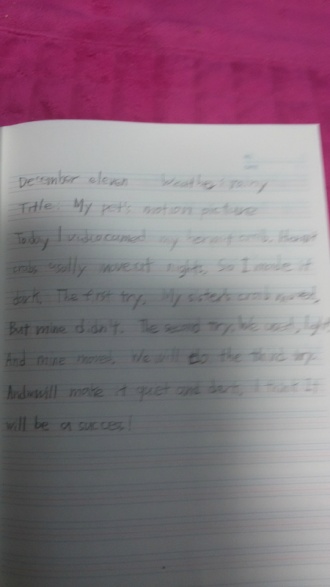 December eleven Weather: rainy
Title: My pet's motion picture
Today I videocamed my hermit crab. Hermit
crabs usally move at nights, So I made it
dark. The first try, My sister's crab moved,
But mine didn't. The second try, We used, light
And mine moved. We will do the third try.
And will make it quiet and dark. I think It
will be a success!